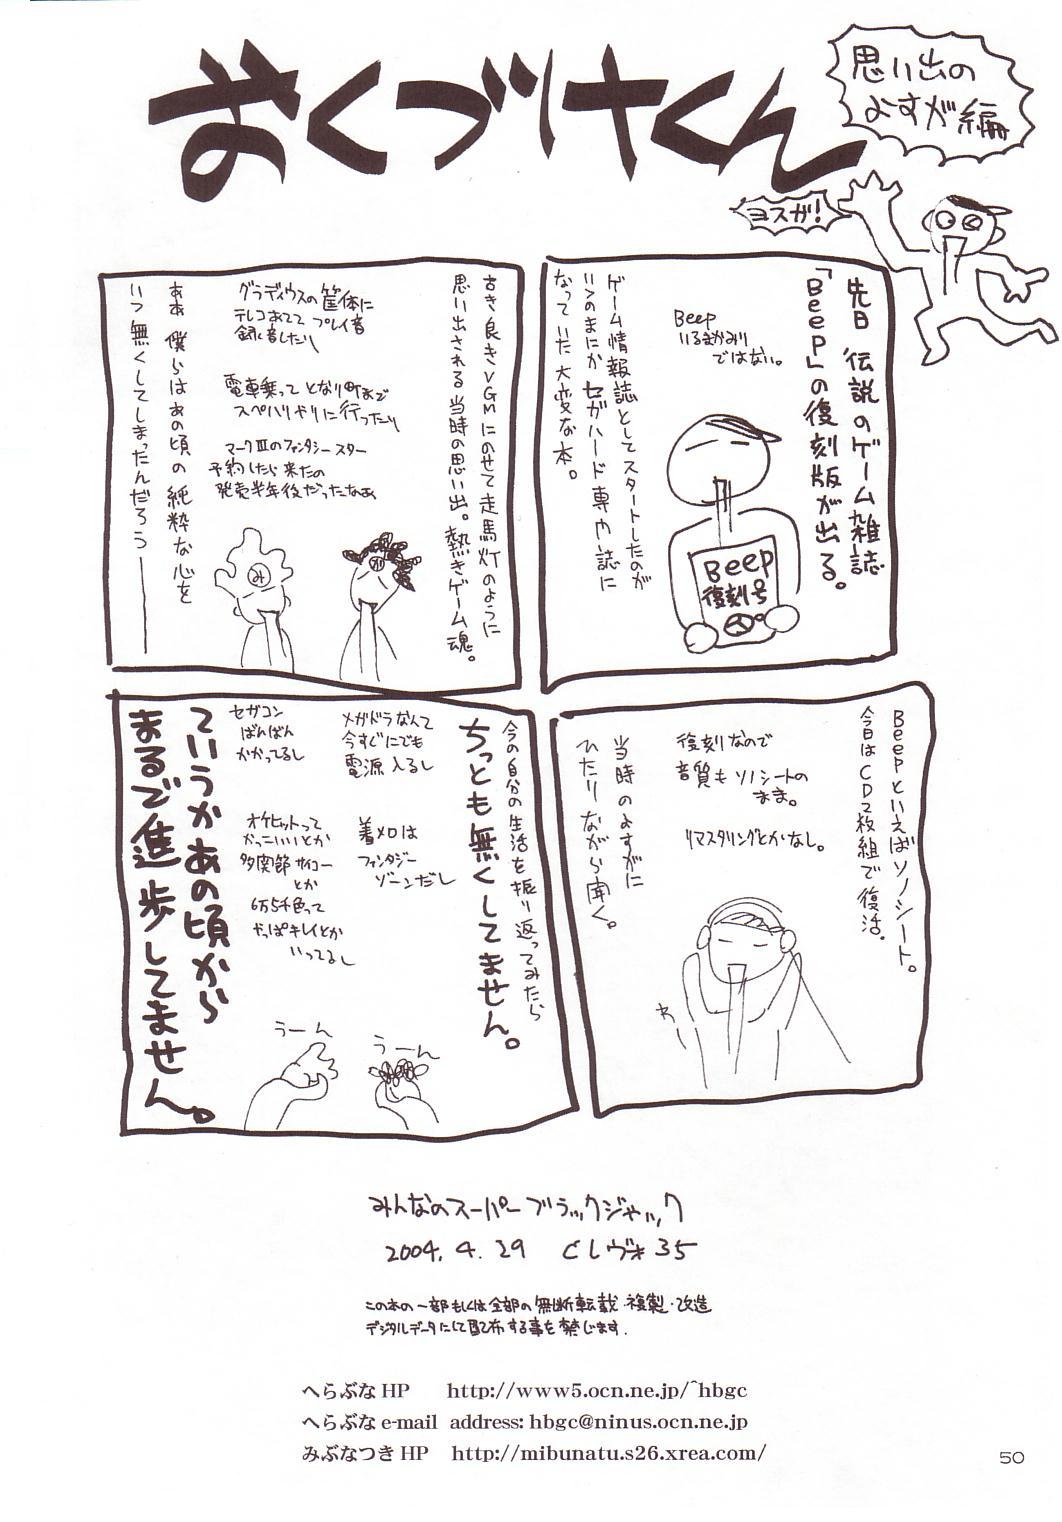 おくづけくん
思い出の
よすが編
ヨスガ!
先日 伝説のゲーム雑誌
「Beep」の復刻版が出る。
Beep
いるまかみり
ではない。
ゲーム情報誌としてスタートしたのが
いつのまにかセガハード専門誌に
なっていた大変な本。
Beep
復刻号
古き良きVGMにのせて走馬灯のように
思い出される当時の思い出。熱きゲーム魂。
グラディウスの筐体に
テレコあてて プレイ音
録音したり
電車乗って となり町まで
スペハリドリに行ったり
マークⅢのファンタシースター
予約したら来たの
発売半年後だったなぁ
ああ 僕らはあの頃の純粋な心を
いつ無くしてしまったんだろう―――
み
み
Beepといえばソノシート。
今日はCD2枚組で復活。
復刻なので
音質も ソノシートの
まま。
リマスタリングとかなし。
当時のよすがに
ひたりながら聞く。
今の自分の生活を振り返ってみたら
ちっとも無くしてません。
メガドラなんて
今すぐにでも
電源入るし
着メロは
ファンタジー
ゾーンだし
セガコン
ばんばん
かかってるし
オケヒットって
かっこいいとか
多関節サイコー
とか
6万5千色って
やっぱキレイとか
いってるし
ていうかあの頃から
まるで進歩してません。
うーん
うーん
みんなのスーパーブラックジャック
2004. 4. 29 Cレヴォ35
この本の一部もしくは全部の無断転載・複製・改造
デジタルデータにして配布する事を禁じます.
へらぶな HP http://www5.ocn.ne.jp/~hbgc
へらぶな e-mail address: hbgc@ninus.ocn.ne.jp
みぶなつき HP http://mibunatu.s26.xrea.com/
50